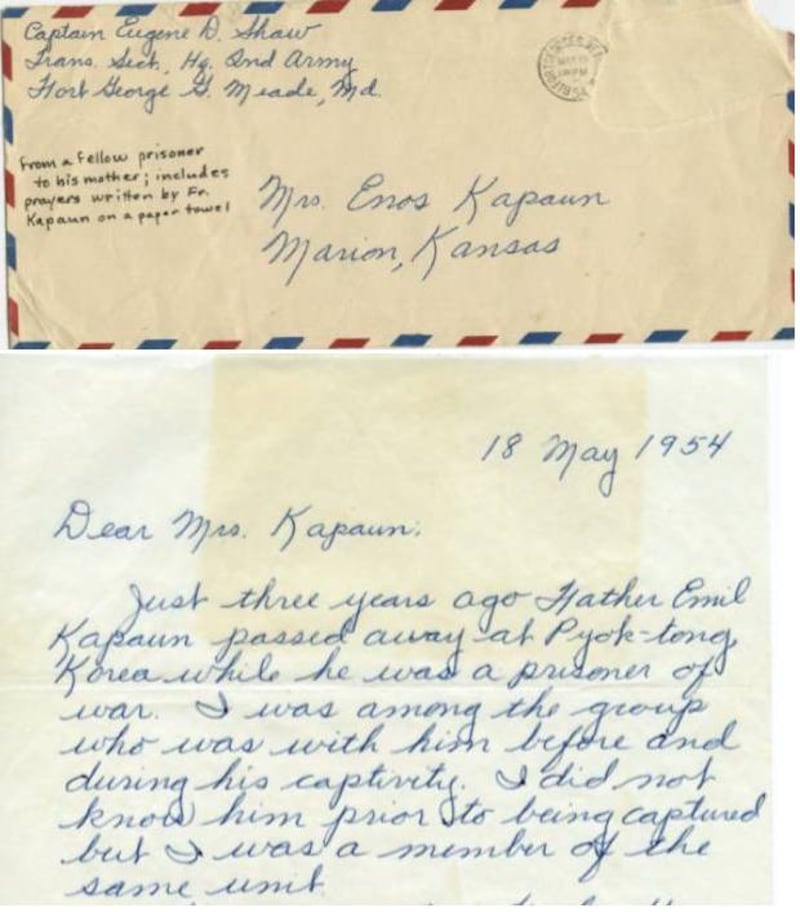 Captain Eugene D. Shaw
Trans. Sect., Hq. 2nd Army
Fort George G. Meade, Md.
From a fellow prisoner
to his mother; includes
prayers written by Fr.
Kapaun on a paper towel
Mrs. Enos Kapaun
Marion, Kansas
18 May 1954
Dear Mrs. Kapaun:
Just three years ago Father Emil
Kapaun passed away at Pyok-tong,
Korea while he was a prisoner of
war. I was among the group
who was with him before and
during his captivity. I did not
know him prior to being captured
but I was a member of the
same unit.